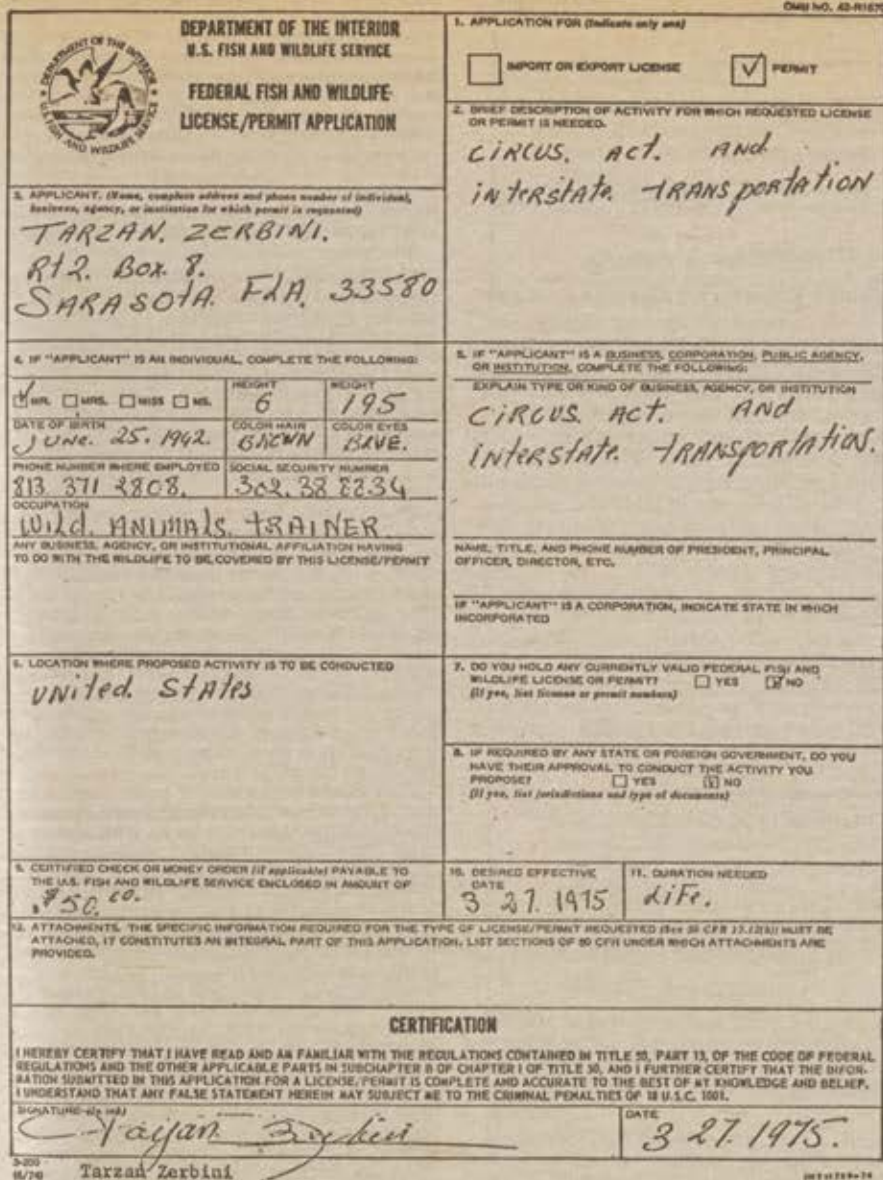 OMB NO. 42-R1670
DEPARTMENT OF THE INTERIOR
U.S. FISH AND WILDLIFE SERVICE
FEDERAL FISH AND WILDLIFE
LICENSE/PERMIT APPLICATION
DEPARTMENT OF THE INTERIOR
U.S. FISH AND WILDLIFE SERVICE
1. APPLICATION FOR (Indicate only one)
IMPORT OR EXPORT LICENSE
PERMIT
2. BRIEF DESCRIPTION OF ACTIVITY FOR WHICH REQUESTED LICENSE
OR PERMIT IS NEEDED.
CIRCUS. Act. AND
interstate. TRANSportation
3. APPLICANT. (Name, complete address and phone number of individual,
business, agency, or institution for which permit is requested)
TARZAN. ZERBINI.
Rt 2. Box 8.
SARASOtA. FLA. 33580
4. IF "APPLICANT" IS AN INDIVIDUAL, COMPLETE THE FOLLOWING:
MR. MRS. MISS MS.
HEIGHT
6
WEIGHT
195
DATE OF BIRTH
JUNe. 25. 1942.
COLOR HAIR
BROWN
COLOR EYES
BLUE.
PHONE NUMBER WHERE EMPLOYED
813. 371 2808.
SOCIAL SECURITY NUMBER
302. 38 8234
OCCUPATION
Wild. ANIMALS. tRAINER
ANY BUSINESS, AGENCY, OR INSTITUTIONAL AFFILIATION HAVING
TO DO WITH THE WILDLIFE TO BE COVERED BY THIS LICENSE/PERMIT
5. IF "APPLICANT" IS A BUSINESS, CORPORATION, PUBLIC AGENCY,
OR INSTITUTION, COMPLETE THE FOLLOWING:
EXPLAIN TYPE OR KIND OF BUSINESS, AGENCY, OR INSTITUTION
CIRCUS. Act. AND
interstate. TRANSportation.
NAME, TITLE, AND PHONE NUMBER OF PRESIDENT, PRINCIPAL
OFFICER, DIRECTOR, ETC.
IF "APPLICANT" IS A CORPORATION, INDICATE STATE IN WHICH
INCORPORATED
6. LOCATION WHERE PROPOSED ACTIVITY IS TO BE CONDUCTED
UNited. StAtes
7. DO YOU HOLD ANY CURRENTLY VALID FEDERAL FISH AND
WILDLIFE LICENSE OR PERMIT? YES NO
(If yes, list license or permit numbers)
8. IF REQUIRED BY ANY STATE OR FOREIGN GOVERNMENT, DO YOU
HAVE THEIR APPROVAL TO CONDUCT THE ACTIVITY YOU
PROPOSE? YES NO
(If yes, list jurisdictions and type of documents)
9. CERTIFIED CHECK OR MONEY ORDER (if applicable) PAYABLE TO
THE U.S. FISH AND WILDLIFE SERVICE ENCLOSED IN AMOUNT OF
$ 50.00.
10. DESIRED EFFECTIVE
DATE
3 27. 1975
11. DURATION NEEDED
LiFe.
12. ATTACHMENTS. THE SPECIFIC INFORMATION REQUIRED FOR THE TYPE OF LICENSE/PERMIT REQUESTED (See 50 CFR 13.12(b)) MUST BE
ATTACHED, IT CONSTITUTES AN INTEGRAL PART OF THIS APPLICATION. LIST SECTIONS OF 50 CFR UNDER WHICH ATTACHMENTS ARE
PROVIDED.
CERTIFICATION
I HEREBY CERTIFY THAT I HAVE READ AND AM FAMILIAR WITH THE REGULATIONS CONTAINED IN TITLE 50, PART 13, OF THE CODE OF FEDERAL
REGULATIONS AND THE OTHER APPLICABLE PARTS IN SUBCHAPTER B OF CHAPTER I OF TITLE 50, AND I FURTHER CERTIFY THAT THE INFOR-
MATION SUBMITTED IN THIS APPLICATION FOR A LICENSE/PERMIT IS COMPLETE AND ACCURATE TO THE BEST OF MY KNOWLEDGE AND BELIEF.
I UNDERSTAND THAT ANY FALSE STATEMENT HEREIN MAY SUBJECT ME TO THE CRIMINAL PENALTIES OF 18 U.S.C. 1001.
SIGNATURE (In ink)
Tarzan Zerbini
DATE
3 27. 1975.
3-200
(6/74)
Tarzan Zerbini